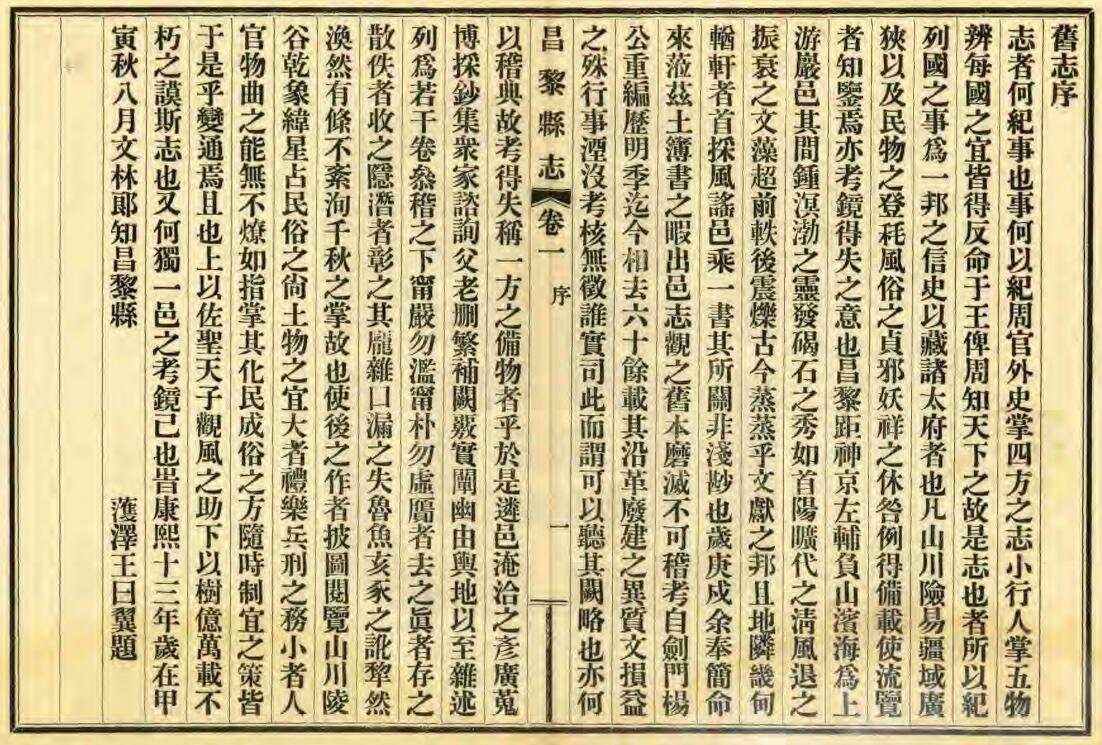 舊志序
志者何紀事也事何以紀周官外史掌四方之志小行人掌五物
辨每國之宜皆得反命于王俾周知天下之故是志也者所以紀
列國之事爲一邦之信史以藏諸太府者也凡山川險易疆域廣
狹以及民物之登耗風俗之貞邪妖祥之休咎例得備載使流覽
者知鑒焉亦考鏡得失之意也昌黎距神京左輔負山濱海爲上
游巖邑其間鍾溟渤之靈發碣石之秀如首陽曠代之淸風退之
振衰之文藻超前軼後震爍古今蒸蒸乎文獻之邦且地隣畿甸
輶軒者首採風謠邑乘一書其所關非淺尠也歲庚戌余奉簡命
來蒞茲土簿書之暇出邑志觀之舊本磨滅不可稽考自劍門楊
公重編歷明季迄今相去六十餘載其沿革廢建之異質文損益
之殊行事湮沒考核無徵誰實司此而謂可以聽其闕略也亦何
昌黎縣志 卷一 序 一
以稽典故考得失稱一方之備物者乎於是遴邑淹洽之彥廣蒐
博採鈔集衆家諮詢父老删繁補闕覈實闡幽由輿地以至雜述
列爲若干卷叅稽之下甯嚴勿濫甯朴勿虛贋者去之眞者存之
散佚者收之隱潛者彰之其龐雜口漏之失魯魚亥豕之訛犂然
渙然有條不紊洵千秋之掌故也使後之作者披圖閱覽山川陵
谷乾象緯星占民俗之尙土物之宜大者禮樂兵刑之務小者人
官物曲之能無不燎如指掌其化民成俗之方隨時制宜之策皆
于是乎變通焉且也上以佐聖天子觀風之助下以樹億萬載不
朽之謨斯志也又何獨一邑之考鏡已也旹康熙十三年歲在甲
寅秋八月文林郎知昌黎縣 濩澤王曰翼題